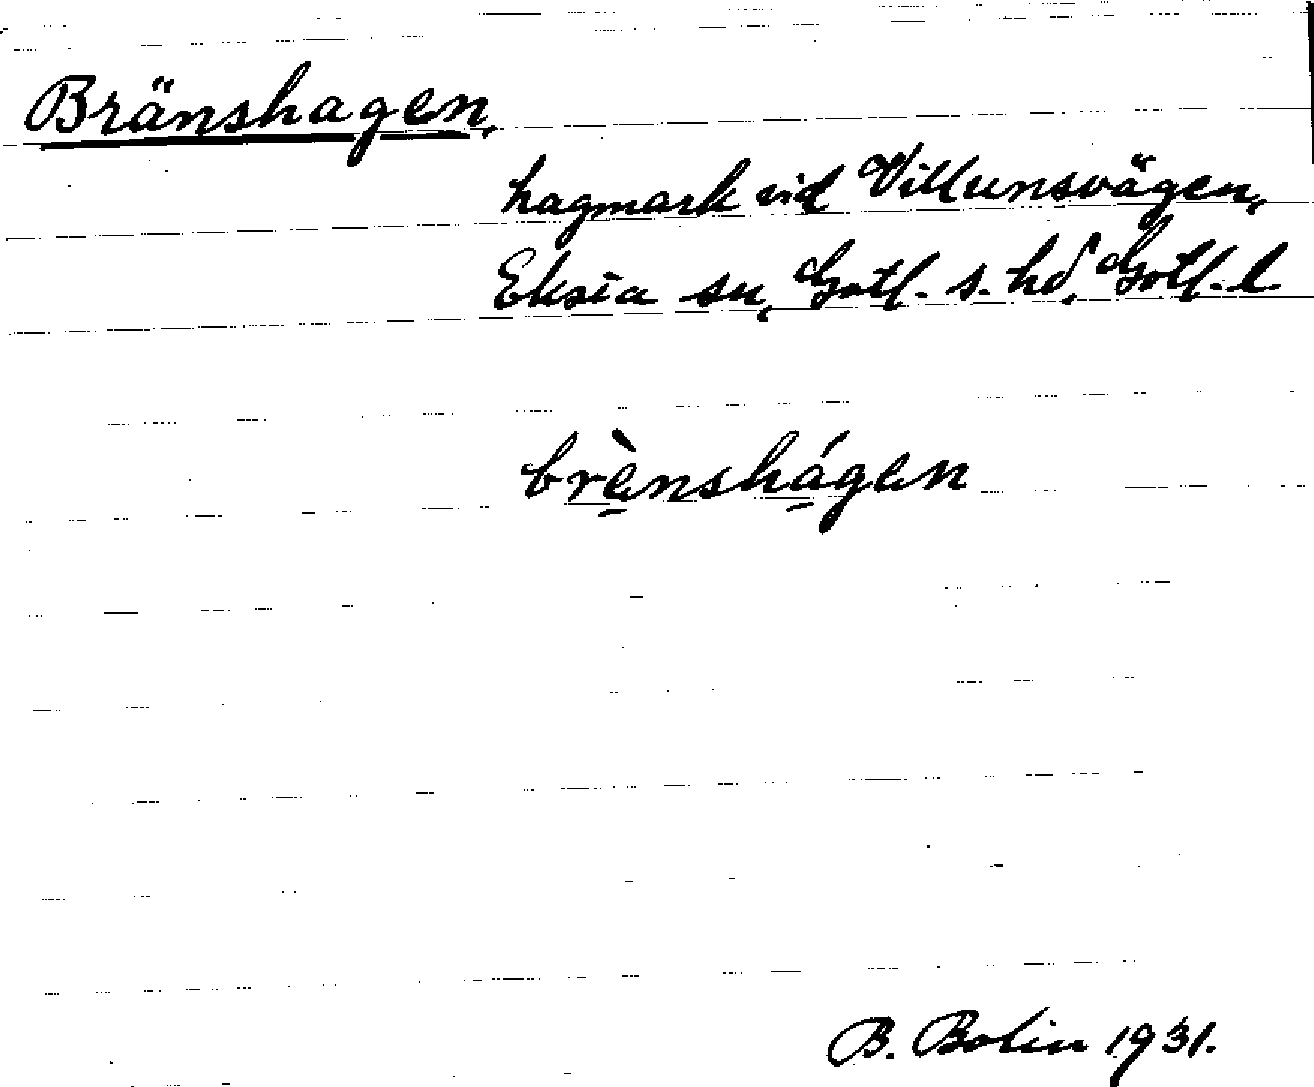 Bränshagen,
hagmark vid Villunsvägen,
Eksta sn, Gotl. s. hd, Gotl. l.
brènshágen
B. Bolin 1931.